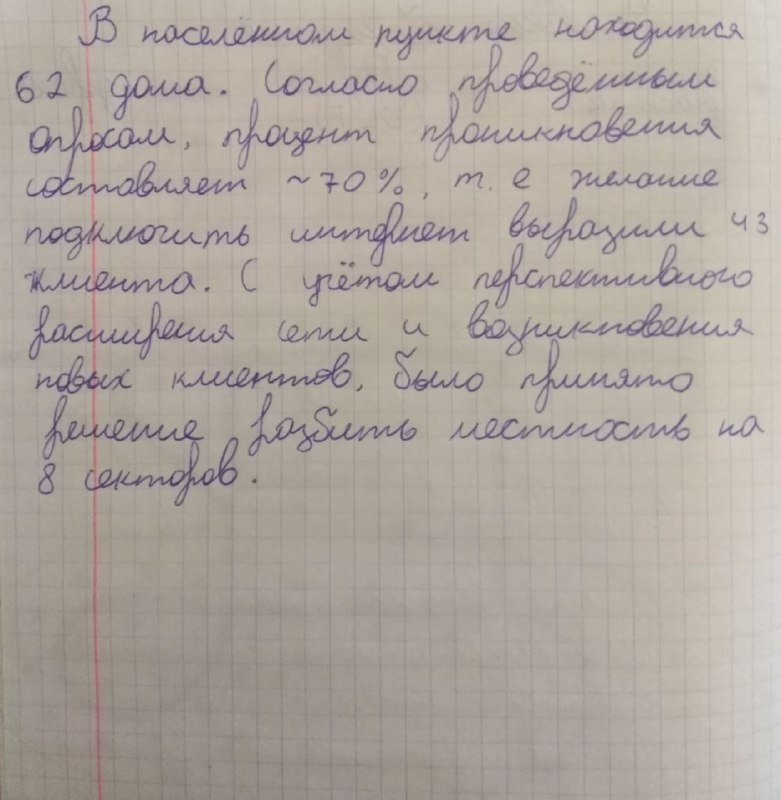 В населённом пункте находится
62 дома. Согласно проведённым
опросам, процент проникновения
составляет ~70%, т.е желание
подключить интернет выразили 43
клиента. С учётом перспективного
расширения сети и возникновения
новых клиентов, было принято
решение разбить местность на
8 секторов.